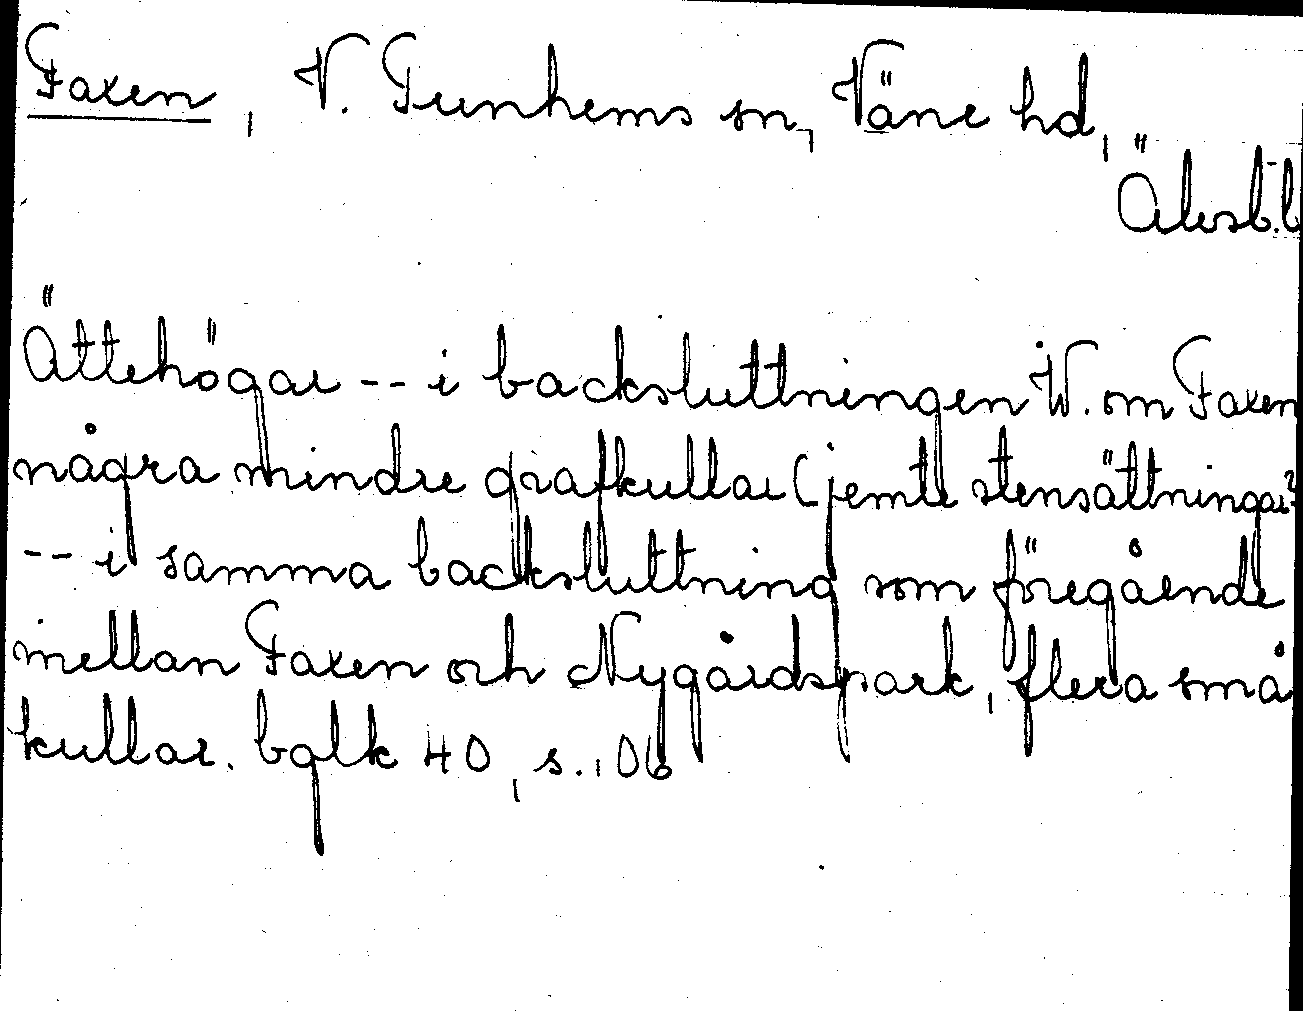 Faxen, V. Tunhems sn, Väne hd,
Älvsb.l
Ättehögar -- i backsluttningen V. om Faxen
några mindre grafkullar (jemte stensättningar?
-- i samma backsluttning som föregående
mellan Faxen och Nygårdspark, flera små
kullar. bglk 40, s. 106